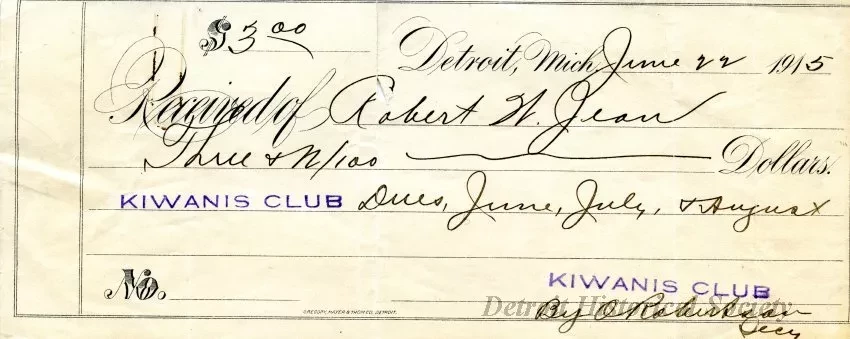 $3.00
Detroit, Mich. June 22 1915
Received of Robert W. Jean
Three & N/100 Dollars.
KIWANIS CLUB Dues, June, July, & August
No.
KIWANIS CLUB
Detroit Historical Society
By O Robertson
Secy
GREGORY, MAYER & THOM CO. DETROIT.